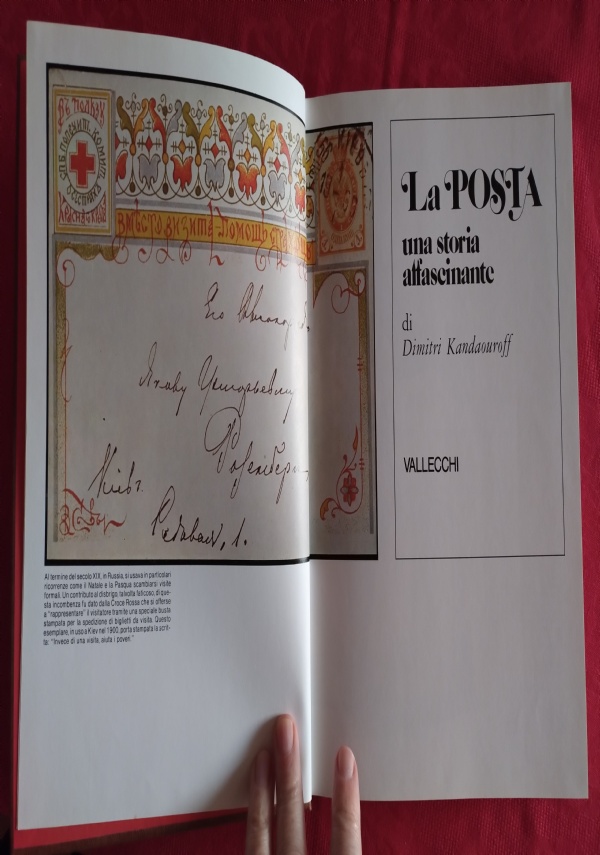 ВЪ ПОЛЬЗУ
ВМѢСТО ВИЗИТА-ПОМОЩЬ
Его
Якову
Кіевъ
Al termine del secolo XIX, in Russia, si usava in particolari
ricorrenze come il Natale e la Pasqua scambiarsi visite
formali. Un contributo al disbrigo, talvolta faticoso, di que-
sta incombenza fu dato dalla Croce Rossa che si offerse
a "rappresentare" il visitatore tramite una speciale busta
stampata per la spedizione di biglietti da visita. Questo
esemplare, in uso a Kiev nel 1900, porta stampata la scrit-
ta: "Invece di una visita, aiuta i poveri."
La POSTA
una storia
affascinante
di
Dimitri Kandaouroff
VALLECCHI